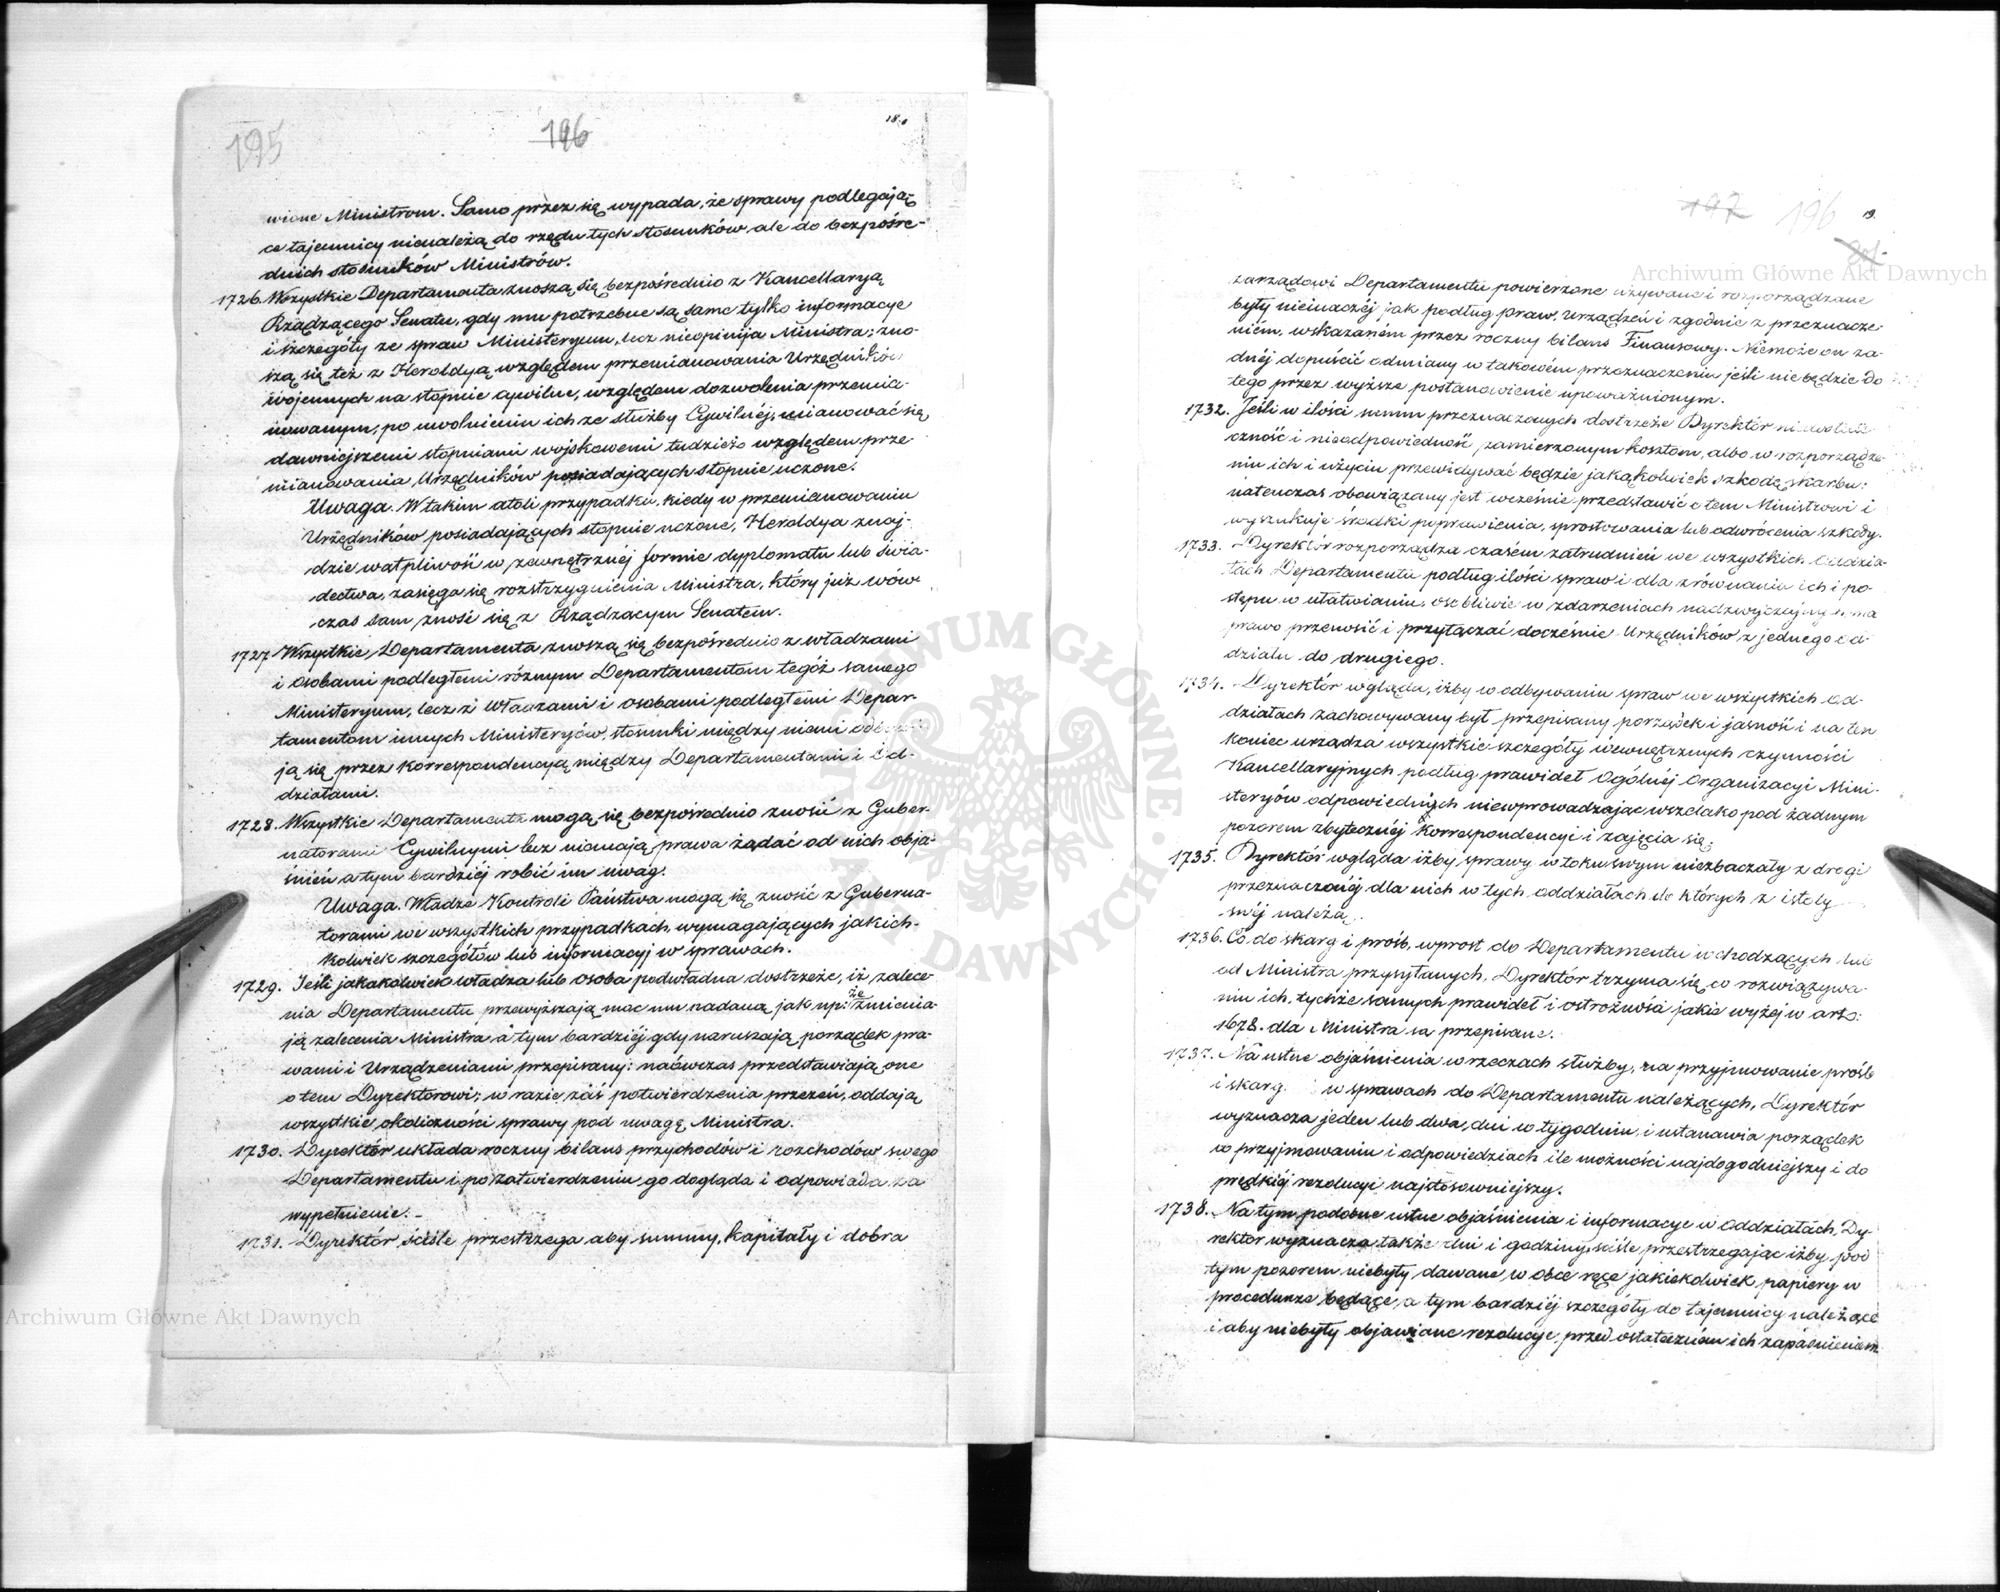 195
196
18.
wione Ministrom. Samo przez się wypada, że sprawy podlegają-
ce tajemnicy nienależą do rzędu tych stosunków ale do bezpośre-
dnich stosunków Ministrów.
1726. Wszystkie Departamenta znoszą się bezpośrednio z Kancellaryą
Rządzącego Senatu, gdy mu potrzebne są same tylko informacye
i szczegóły ze spraw Ministeryum, lecz nie opinija Ministra; zno-
szą się też z Heroldyą względem przemianowania Urzędników
wojennych na stopnie cywilne, względem dozwolenia przemia-
nowanym, po uwolnieniu ich ze służby Cywilnéj, mianować się
dawniejszemi stopniami wojskowemi tudzież względem prze
mianowania Urzędników posiadających stopnie uczone.
Uwaga. W takim atoli przypadku, kiedy w przemianowaniu
Urzędników posiadających stopnie uczone, Heroldya znaj-
dzie wątpliwość w zewnętrznéj formie dyplomatu lub świa-
dectwa, zasięga się rozstrzygnienia Ministra, który już wów
czas sam znosi się z Rządzącym Senatem.
1727 Wszystkie Departamenta znoszą się bezpośrednio z władzami
i osobami podległemi różnym Departamentom tegóż samego
Ministeryum, lecz z władzami i osobami podległemi Depar-
tamentom innych Ministeryów, stosunki między niemi odbywa
ją się przez korrespondencyą między Departamentami i Od-
działami.
1728. Wszystkie Departamenta mogą się bezpośrednio znosić z Guber-
natorami Cywilnymi lecz niemają prawa żądać od nich obja-
śnień a tym bardziéj robić im uwag.
Uwaga. Władze Kontroli Państwa mogą się znosić z Guberna-
torami we wszystkich przypadkach, wymagających jakich-
kolwiek szczegółów lub informacyj w sprawach.
1729. Jeśli jakakolwiek władza lub osoba podwładna dostrzeże, iż zalece-
nia Departamentu przewyższają moc mu nadaną, jak np: że zmienia-
ją zalecenia Ministra a tym bardziéj gdy naruszają porządek pra-
wami i Urządzeniami przepisany: naówczas przedstawiają one
o tem Dyrektorowi; w razie zaś potwierdzenia przezeń, oddają
wszystkie okoliczności sprawy pod uwagę Ministra.
1730. Dyrektór układa roczny bilans przychodów i rozchodów swego
Departamentu i po zatwierdzeniu go dogląda i odpowiada za
wypełnienie. -
1731. Dyrektór, ściśle przestrzega aby summy, kapitały i dobra
197 196 19.
zarządowi Departamentu powierzone używane i rozporządzane
były nieinaczéj jak podług praw, urządzeń i zgodnie z przeznacze-
niém, wskazaném przez roczny bilans Finansowy. Niemoże on ża-
dnéj dopuścić odmiany w takowém przeznaczeniu jeśli nie będzie do
tego przez wyższe postanowienie upoważnionym.
1732. Jeśli w ilości summ przeznaczonych dostrzeże Dyrektór niedostate
czność i nieodpowiedność zamierzonym kosztom, albo w rozporządze-
niu ich i użyciu przewidywać będzie jakąkolwiek szkodę skarbu:
natenczas obowiązany jest wcześnie przedstawić o tem Ministrowi i
wyszukuje środki poprawienia, sprostowania lub odwrócenia szkody.
1733. Dyrektór rozporządza czasém zatrudnień we wszystkich Oddzia-
łach Departamentu podług ilości spraw i dla zrównania ich i po-
stępu w ułatwianiu, osobliwie w zdarzeniach nadzwyczajnych, ma
prawo przenosić i przyłączać docześnie Urzędników z jednego od-
działu do drugiego.
1734. Dyrektór wgląda, iżby w odbywaniu spraw we wszystkich od-
działach zachowywany był przepisany porządek i jasność i na ten
koniec urządza wszystkie szczegóły wewnętrznych czynności
Kancellaryjnych podług prawideł Ogólnéj Organizacyi Mini-
steryów odpowiednych niewprowadzając wszelako pod żadnym
pozorem zbyteczněj korrespondencyi i zajęcia się.
1735. Dyrektór wgląda iżby sprawy w toku swym niezbaczały z drogi
przeznaczonéj dla nich w tych oddziałach do których z istoty
swéj należą.
1736. Co do skarg i próśb, wprost do Departamentu wchodzących lub
od Ministra przysyłanych, Dyrektór trzyma się co rozwiązywa-
niu ich, tychże samych prawideł i ostrożności jakie wyżéj w art:
1678. dla Ministra są przepisane.
1737. Na ustne objaśnienia w rzeczach służby, na przyjmowanie próśb
i skarg w sprawach do Departamentu należących, Dyrektór
wyznacza jeden lub dwa dni w tygodniu i ustanawia porządek
w przyjmowaniu i odpowiedziach ile możności najdogodniejszy i do
prędkiéj rezolucyi najstosowniejszy.
1738. Na tym podobne ustne objaśnienia i informacye w oddziałach, Dy-
rektor wyznacza także dni i godziny, ściśle przestrzegając iżby pod
tym pozorem niebyły dawane w obce ręce jakiekolwiek papiery w
procedurze będące, a tym bardziéj szczegóły do tajemnicy należące
i aby niebyły objawiane rezolucye, przed ostateczném ich zapadnieniem
Archiwum Główne Akt Dawnych
Archiwum Główne Akt Dawnych
ARCHIWUM GŁÓWNE AKT DAWNYCH